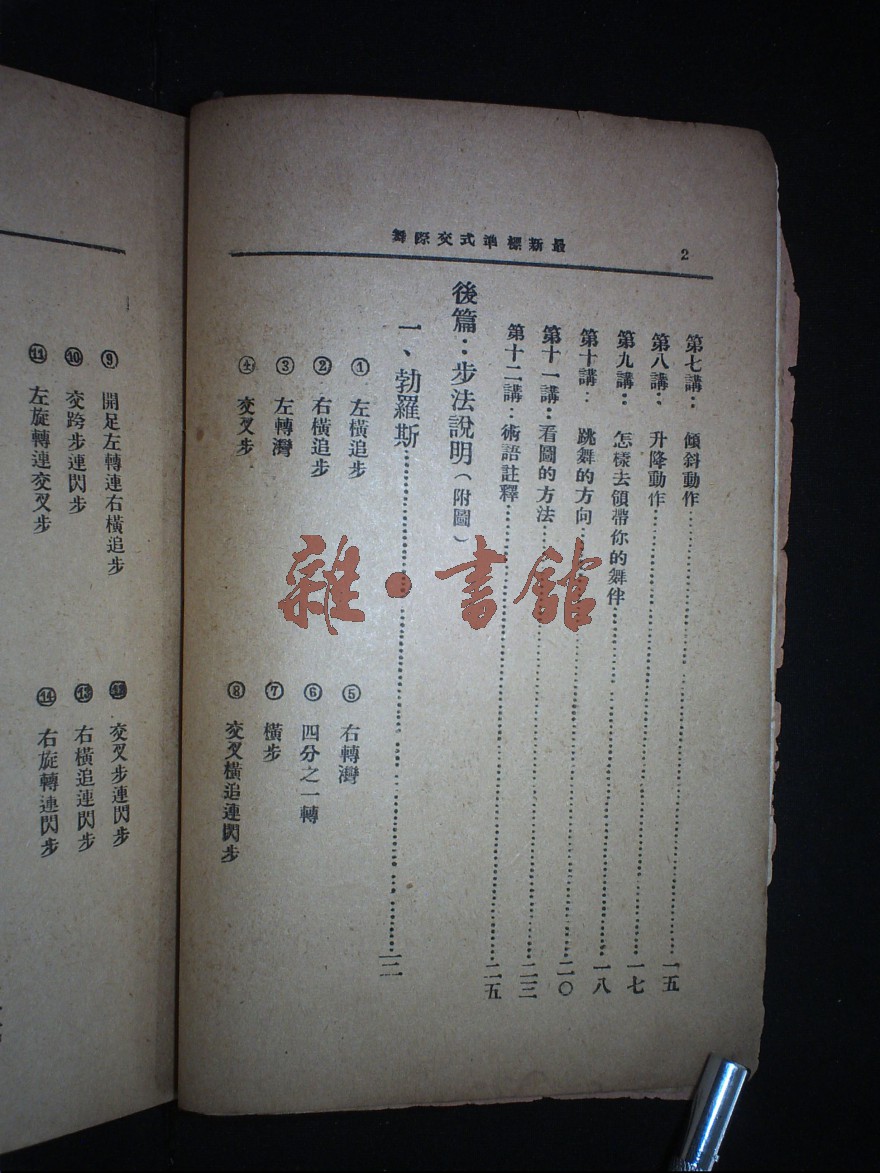 2
最新標準式交際舞
第七講：傾斜動作……一五
第八講：升降動作……一七
第九講：怎樣去領帶你的舞伴……一八
第十講：跳舞的方向……二〇
第十一講：看圖的方法……二三
第十二講：術語註釋……二五
後篇：步法說明（附圖）
一、勃羅斯……
①左橫追步
②右橫追步
③左轉灣
④交叉步
⑤右轉灣
⑥四分之一轉
⑦橫步
⑧交叉橫追連閃步
⑨開足左轉連右橫追步
⑩交跨步連閃步
⑪左旋轉連交叉步
⑫交叉步連閃步
⑬右橫追連閃步
⑭右旋轉連閃步
雜·書館